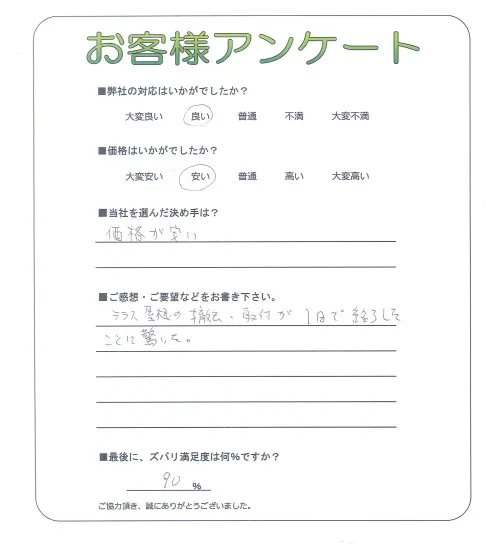 お客様アンケート
■弊社の対応はいかがでしたか？
大変良い 良い 普通 不満 大変不満
■価格はいかがでしたか？
大変安い 安い 普通 高い 大変高い
■当社を選んだ決め手は？
価格が安い
■ご感想・ご要望などをお書き下さい。
テラス屋根の撤去、取付が1日で終了した
ことに驚いた。
■最後に、ズバリ満足度は何％ですか？
90 ％
ご協力頂き、誠にありがとうございました。